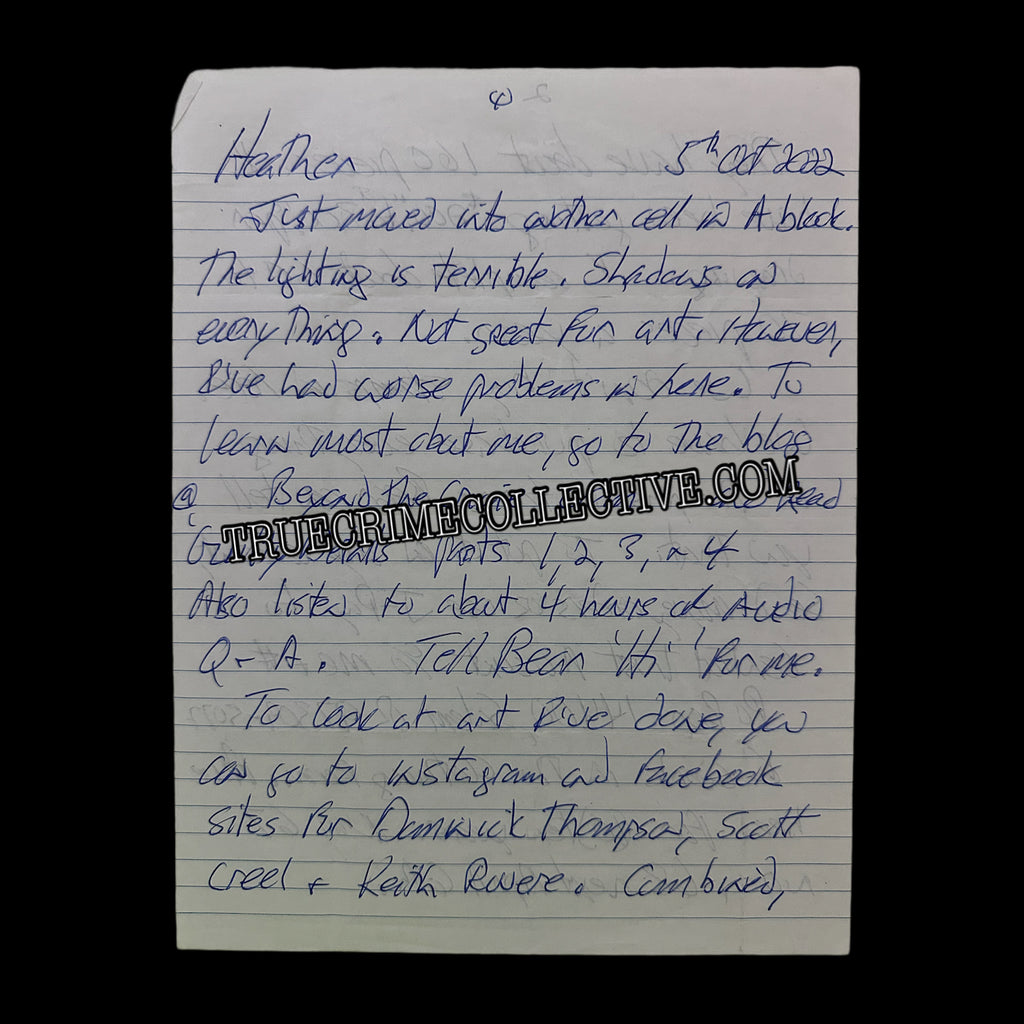 Heather 5th Oct 2022
Just moved into another cell in A block.
The lighting is terrible. Shadows on
everything. Not great for art. However,
I've had worse problems in here. To
learn most about me, go to the blog
@ Beyond the head
TRUECRIMECOLLECTIVE.COM
Parts 1, 2, 3, + 4
Also listen to about 4 hours of Audio
Q + A. Tell Bear 'Hi' for me.
To look at art I've done, you
can go to instagram and facebook
sites for Damwick Thompson, Scott
Creel + Keith Rovere. Combined,